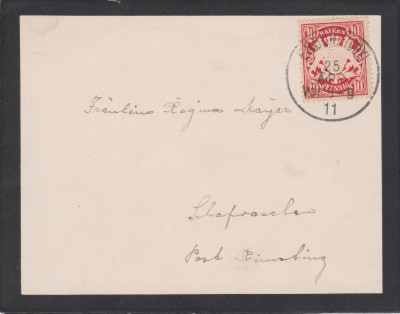 10 BAYERN 10
10 PFENNIG 10
25
APR
VOR. 8-9
11
Fräulein Regina Mayer
Schafwaschen
Post Rimsting